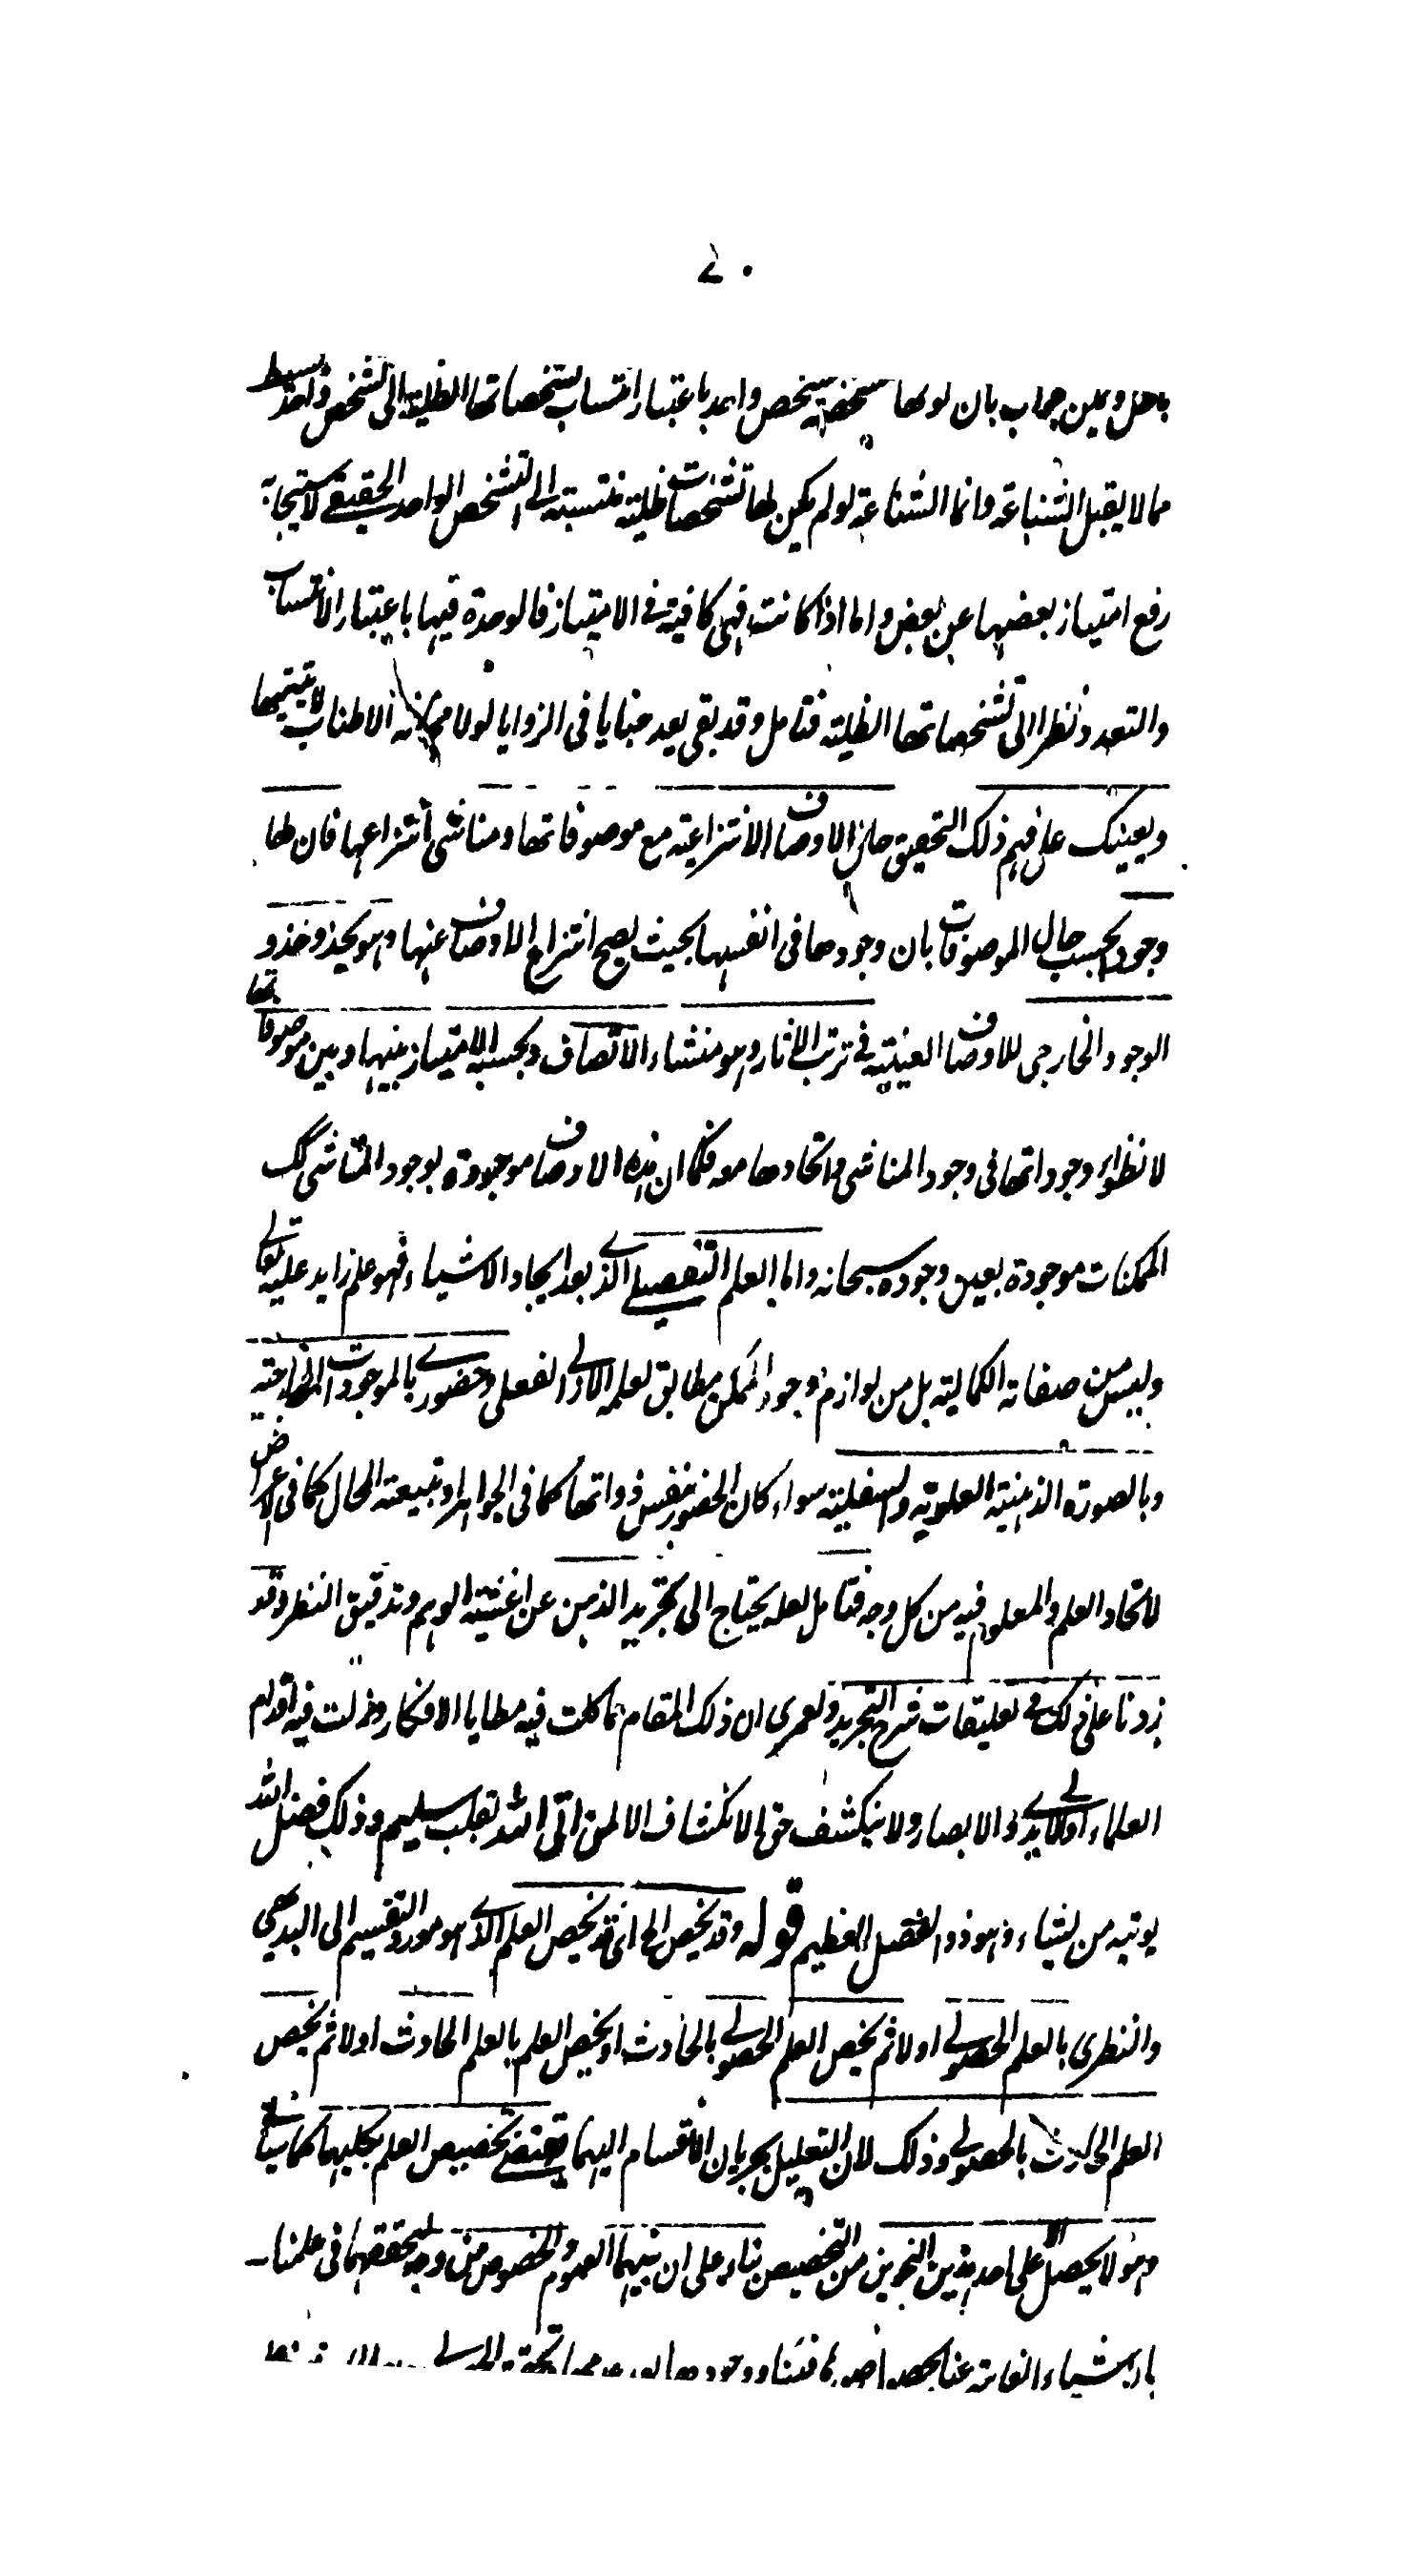 ٧٠
بان لونها متشخصة بتشخص واحد باعتبار انتساب تشخصاتها الظلية الى تشخص واحد بسيط
مما لا يقبل الشناعة وانما الشناعة لو لم يكن لها تشخصات ظلية منتسبة الى التشخص الواحد الحقيقے لاستيجابه
رفع امتياز بعضها عن بعض واما اذا كانت فهى كافية فے الامتياز فالوحدة فيها باعتبار الانتساب
والتعدد نظرا الى تشخصاتها الظلية فتامل وقد بقى بعد خبايا فى الزوايا لولا مخافة الاطناب لاتيتها
ويعينك على فهم ذلك التحقيق حال الاوصاف الانتزاعية مع موصوفاتها ومناشى انتزاعها فان لها
وجود بحسب حال الموصوفات بان وجودها فى انفسها بحيث يصح انتزاع الاوصاف عنها وهو يحذو حذو
الوجود الخارجى للاوصاف العينية فے ترتب الآثار وهو منشاء الاتصاف وبحسبه الامتياز بينها وبين موصوفاتها
لانطواء وجوداتها فى وجود المناشى واتحادها معه فكما ان هذه الاوصاف موجودة بوجود المناشى كك
الممكنات موجودة بعين وجوده سبحانه واما العلم التفصيلے الذے بعد ايجاد الاشياء فهو علم زايد عليه تعالے
وليس من صفاته الكمالية بل من لوازم وجود الممكن مطابق لعلمه الازلے الفعلى وحضورے بالموجودات الخارجية
وبالصورة الذهنية العلوية والسفلية سواء كان الحضور بنفس ذواتها كما فى الجواهر او بتبعية المحال كما فى الاعراض
لاتحاد العلم والمعلوم فيه من كل وجه فتامل لعله يحتاج الى تجريد الذهن عن اغشية الوهم وتدقيق النظر وقد
زدنا على ذلك فے تعليقات شرح التجريد ولعمرى ان ذلك المقام مما كلت فيه مطايا الافكار وزلت فيه اقدام
العلماء اولے الايدے والابصار ولا ينكشف حق الانكشاف الا لمن اتى الله بقلب سليم وذلك فضل الله
يوتيه من يشاء وهو ذو الفضل العظيم قوله وقد يخص الخ اى قد يخص العلم الذے هو مورد التقسيم الى البديهى
والنظرى بالعلم الحصولے اولا ثم يخص العلم الحصولے بالحادث او يخص العلم بالعلم الحادث اولا ثم يخص
العلم الحادث بالحصولے وذلك لان التعليل بجريان الانقسام اليهما يقتضے تخصيص العلم بكليهما كما سياتے
وهو لا يحصل الا على احد هذين النحوين من التخصيص بناء على ان بينهما العموم والخصوص من وجه لتحققهما فى علمنا
بالاشياء الغائبة عنا بحصول صورها فينا ووجود